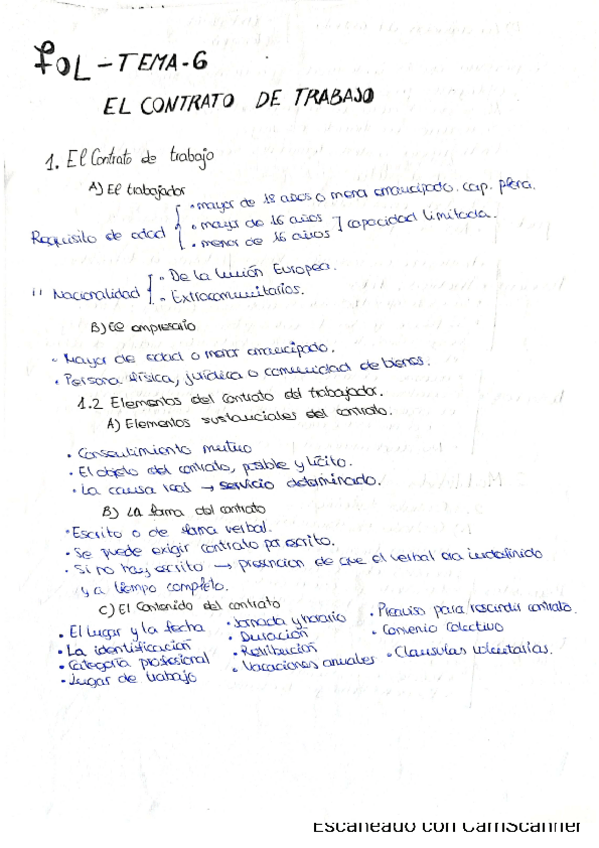 FOL - TEMA-6
EL CONTRATO DE TRABAJO
1. El Contrato de trabajo
A) El trabajador
Requisito de edad
• mayor de 18 años o menor emancipado. cap. plena.
• mayor de 16 años
• menor de 16 años ] capacidad limitada.
" Nacionalidad
• De la Unión Europea.
• Extracomunitarios.
B) El empresario
• Mayor de edad o menor emancipado.
• Persona física, jurídica o comunidad de bienes.
1.2 Elementos del contrato del trabajador.
A) Elementos sustanciales del contrato.
• Consentimiento mutuo
• El objeto del contrato, posible y lícito.
• La causa → servicio determinado.
B) La forma del contrato
• Escrito o de forma verbal.
• Se puede exigir contrato por escrito.
• Si no hay escrito → presuncion de que el verbal era indefinido
y a tiempo completo.
C) El Contenido del contrato
• El lugar y la fecha
• La identificación
• Categoría profesional
• Lugar de trabajo
• Jornada y horario
• Duración
• Retribución
• Vacaciones anuales
• Preaviso para rescindir contrato.
• Convenio colectivo
• Clausulas voluntarias.
Escaneado con CamScanner